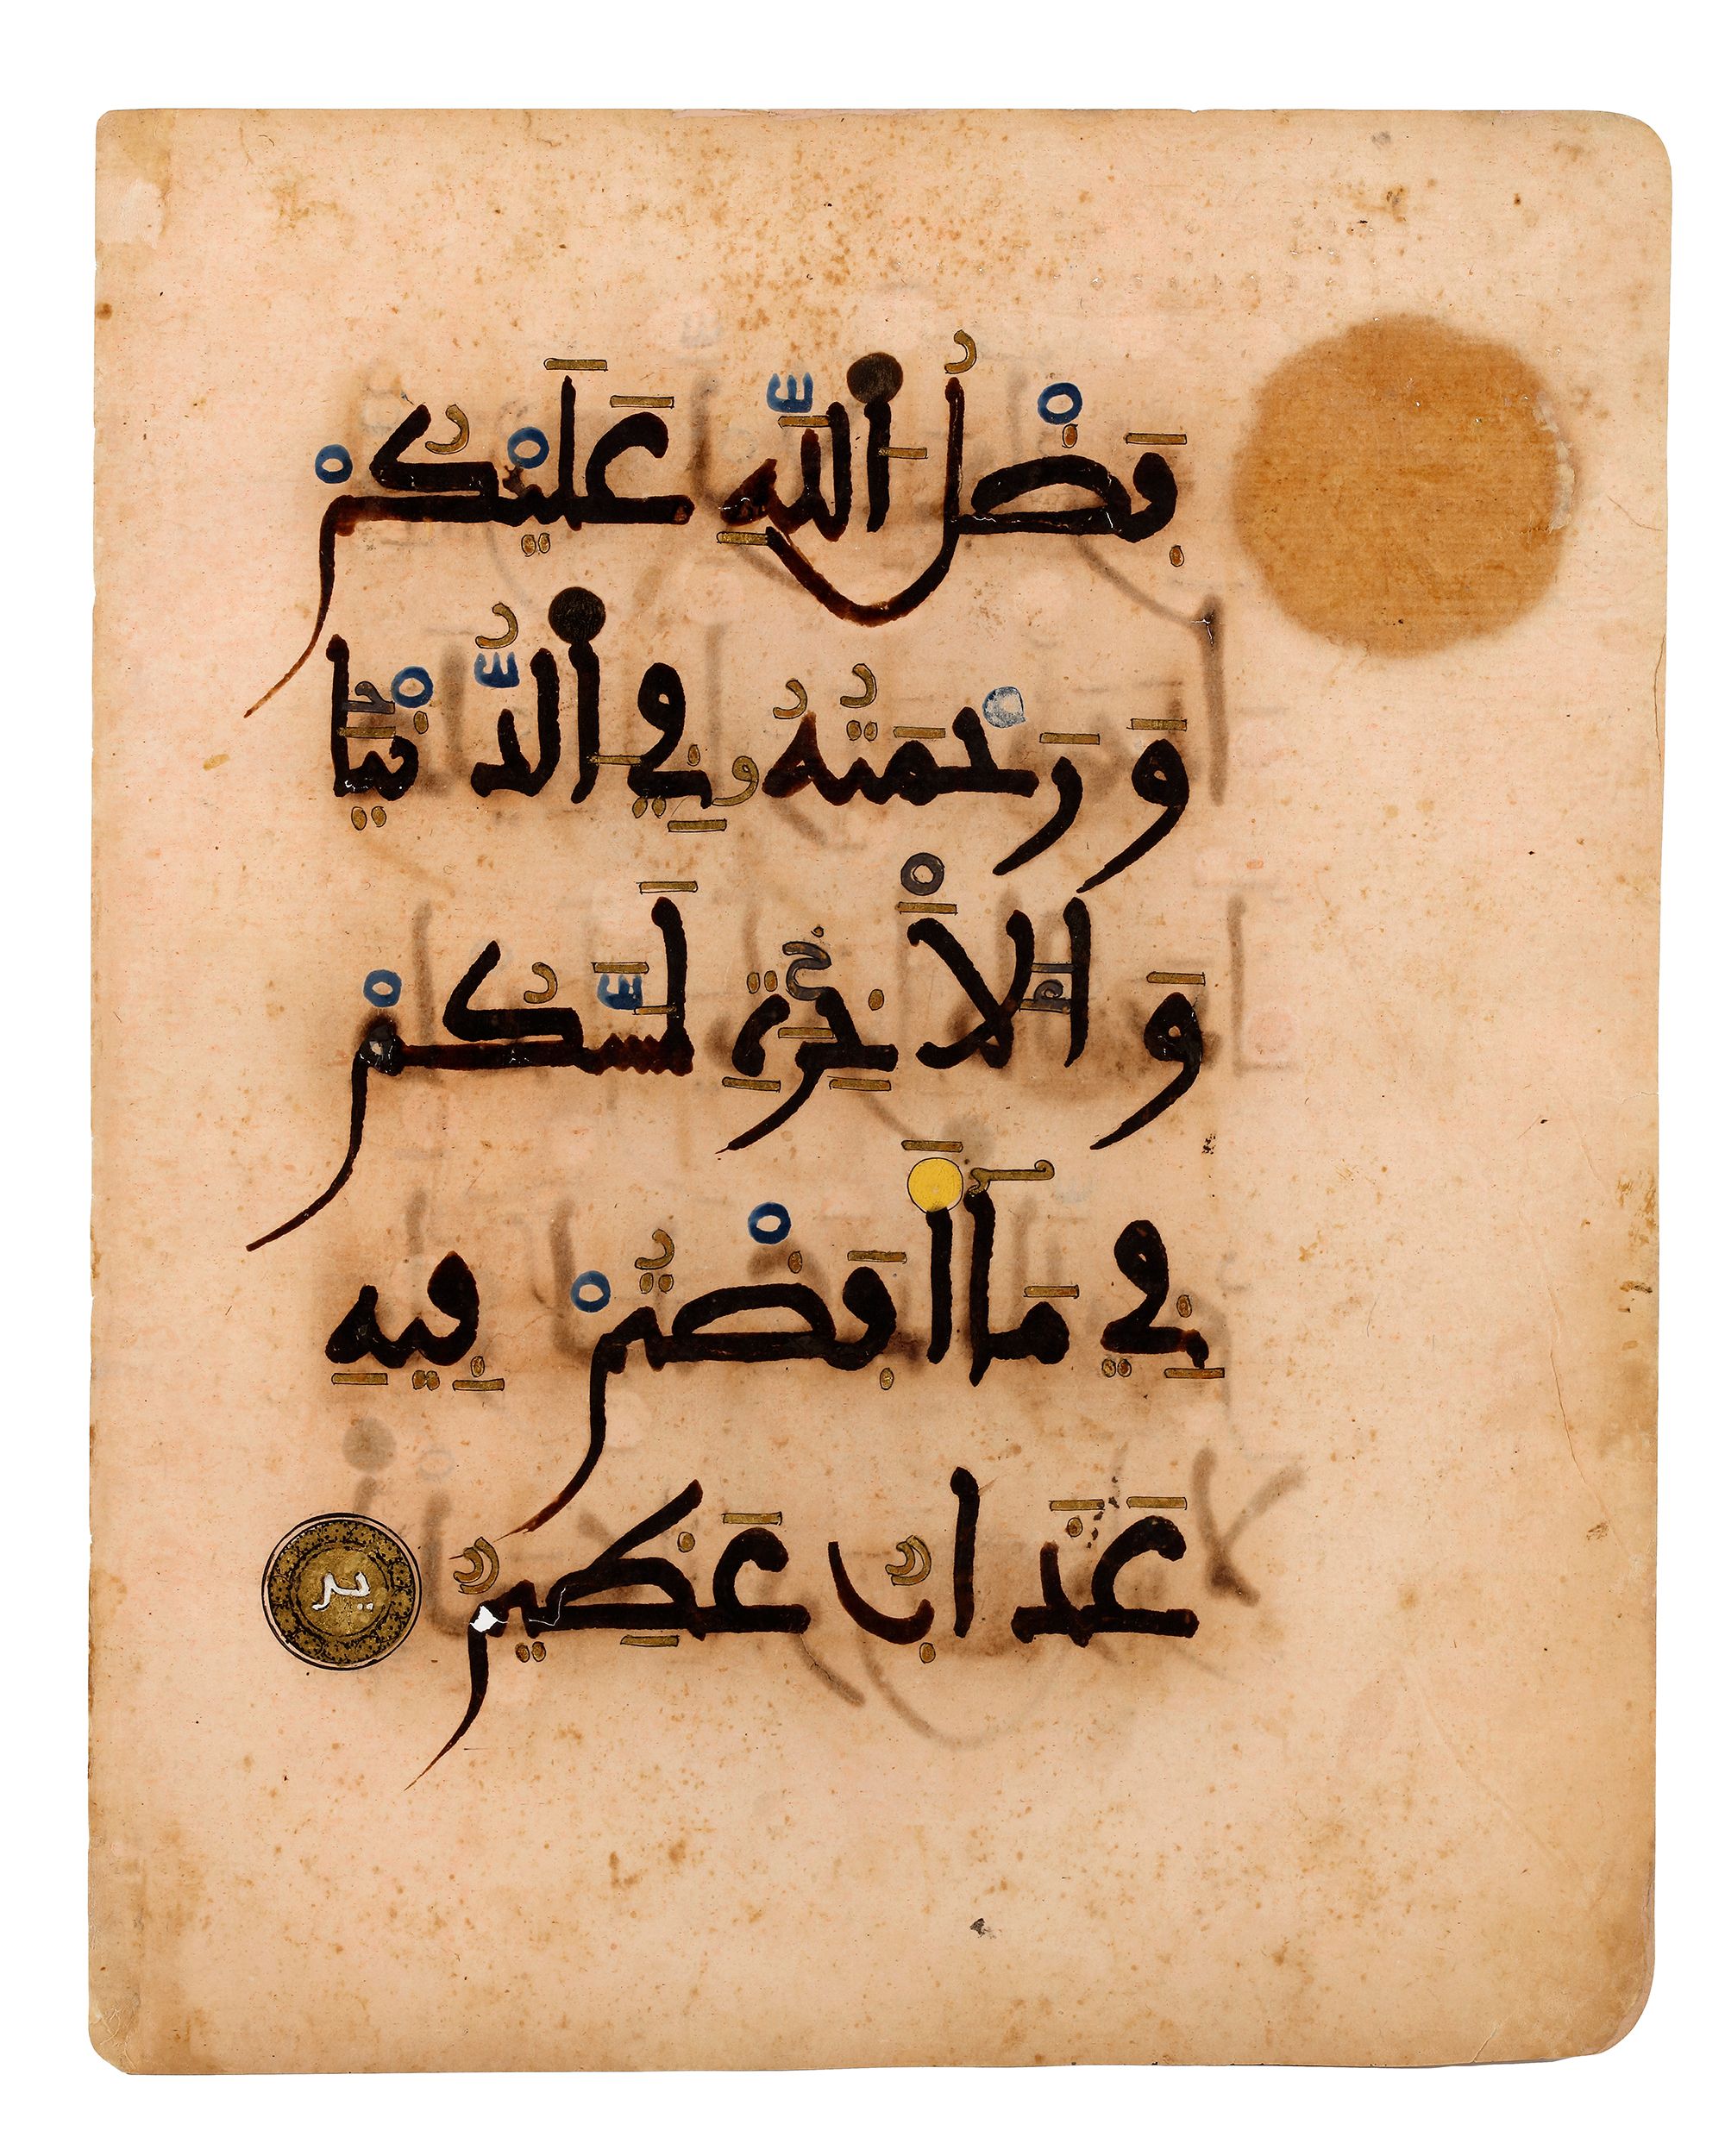 فَضْلُ اُ۬للَّهِ عَلَيْكُمْ
وَرَحْمَتُهُۥ فِي اِ۬لدُّنْيَا
وَالَاخِرَةِ لَمَسَّكُمْ
فِي مَآ أَفَضْتُمْ فِيهِ
عَذَابٌ عَظِيمٌ يد